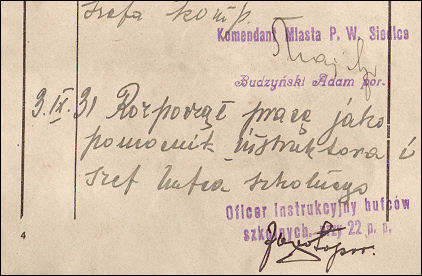 szefa komp.
Komendant Miasta P. W. Siedlce
Budzyński Adam por.
3.IX.31 Rozpoczął pracę jako
pomocnik instruktora i
szef hufca szkolnego
Oficer instrukcyjny hufców
szkolnych. przy 22 p. p.
por.
4